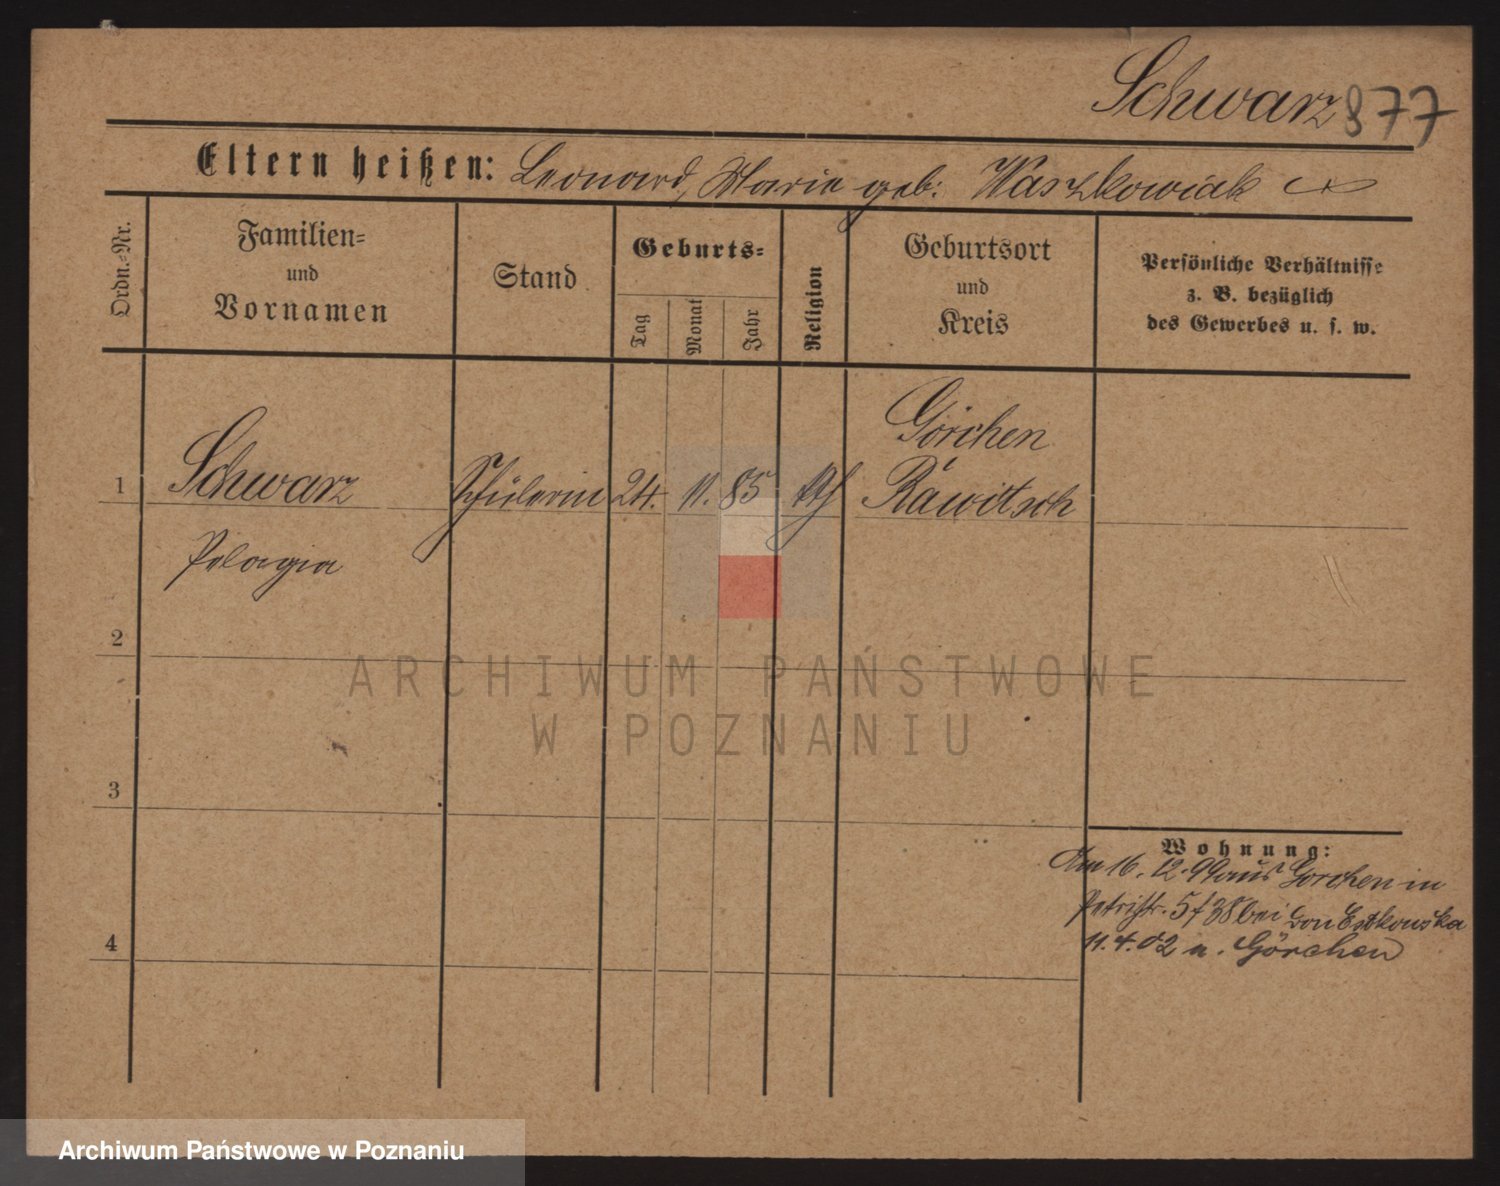 Schwarz 877
Eltern heißen: Leonard, Marie geb: Waszkowiak
Ordn.=Nr.
Familien=
und
Vornamen
Stand
Geburts=
Tag
Monat
Jahr
Religion
Geburtsort
und
Kreis
Persönliche Verhältnisse
z. B. bezüglich
des Gewerbes u. s. w.
1 Schwarz Schülerin 24. 11. 85 kth Görchen
Rawitsch
Pelagia
2
3
4
ARCHIWUM PAŃSTWOWE
W POZNANIU
Wohnung:
Am 16. 12. 99 aus Gorchen in
Petristr. 5 bei von Estkowska
11. 4. 02 n. Görchen
Archiwum Państwowe w Poznaniu